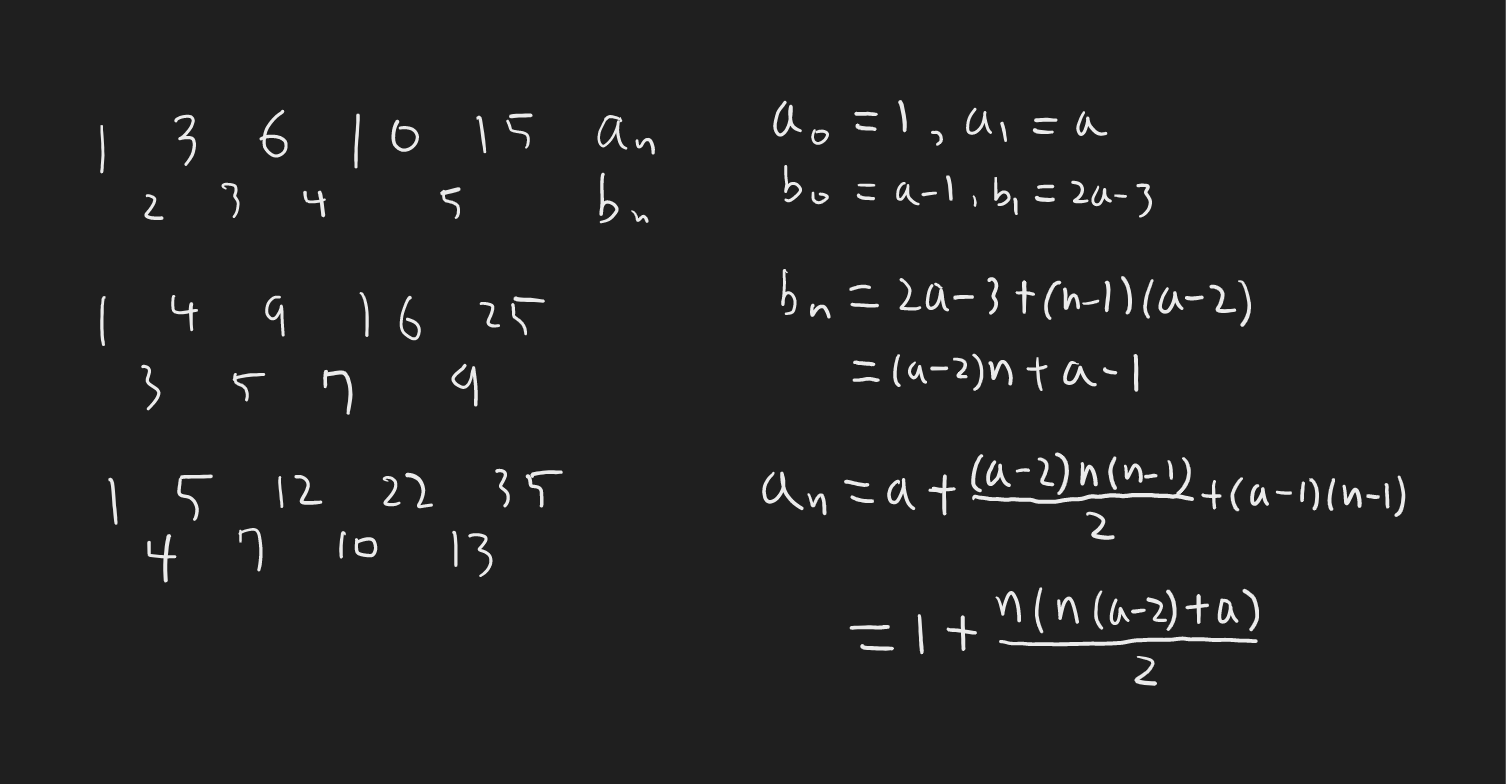 1 3 6 10 15 aₙ
2 3 4 5 bₙ
1 4 9 16 25
3 5 7 9
1 5 12 22 35
4 7 10 13
a₀ = 1, a₁ = a
b₀ = a-1, b₁ = 2a-3
bₙ = 2a-3+(n-1)(a-2)
=(a-2)n+a-1
aₙ = a + (a-2)n(n-1)/2 + (a-1)(n-1)
= 1 + n(n(a-2)+a)/2